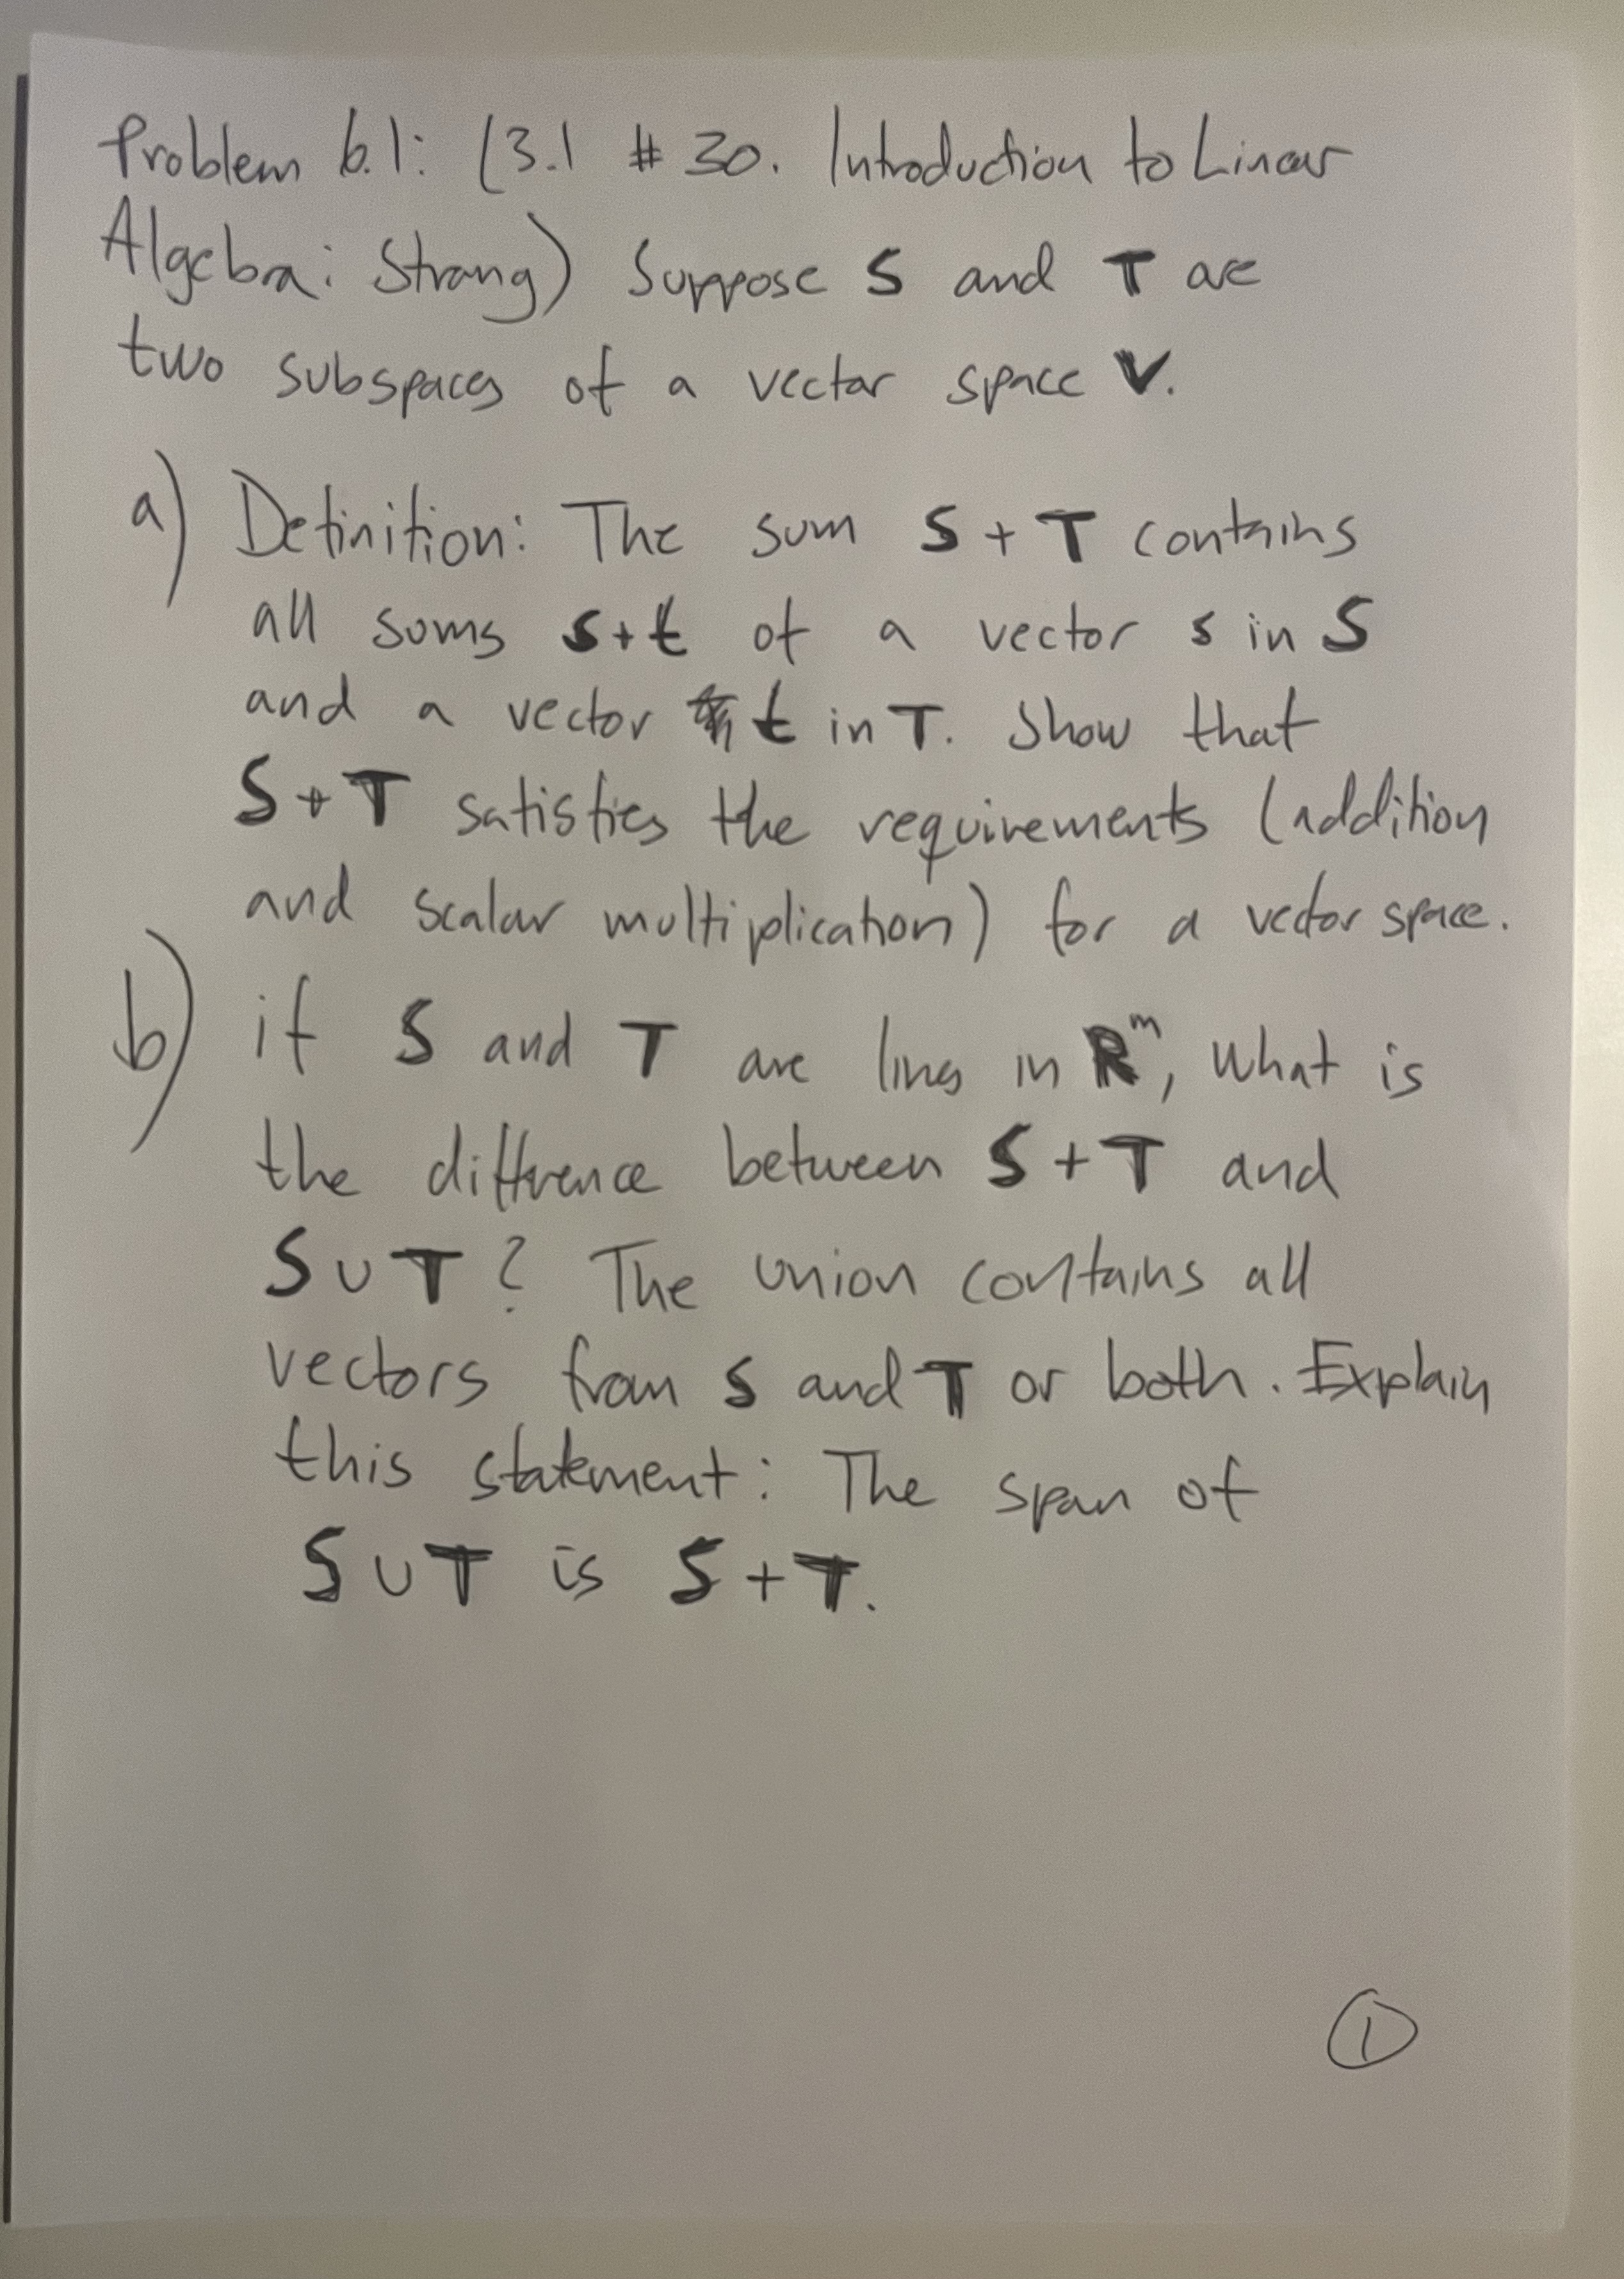 Problem 6.1: (3.1 # 30. Introduction to Linear
Algebra: Strang) Suppose S and T are
two subspaces of a vector space V.
a) Definition: The sum S + T contains
all sums s+t of a vector s in S
and a vector t in T. Show that
S + T satisfies the requirements (addition
and scalar multiplication) for a vector space.
b) if S and T are lines in Rᵐ, what is
the difference between S + T and
S ∪ T ? The union contains all
vectors from S and T or both. Explain
this statement: The span of
S ∪ T is S + T.
1